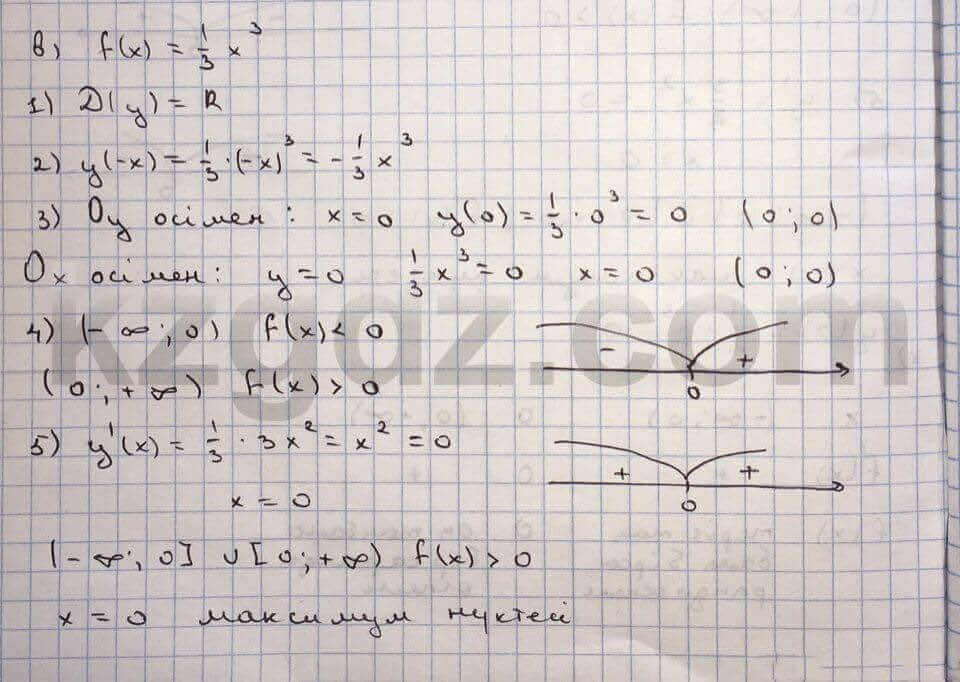 в) f(x) = 1/3 x³
1) D(y) = R
2) y(-x) = 1/3 · (-x)³ = - 1/3 x³
3) Oy осімен: x = 0 y(0) = 1/3 · 0³ = 0 (0; 0)
Ox осімен: y = 0 1/3 x³ = 0 x = 0 (0; 0)
4) (-∞; 0) f(x) < 0
- +
0
(0; +∞) f(x) > 0
5) y'(x) = 1/3 · 3x² = x² = 0
+ +
0
x = 0
(-∞; 0] ∪ [0; +∞) f(x) > 0
x = 0 максимум нүктесі
kzgdz.com